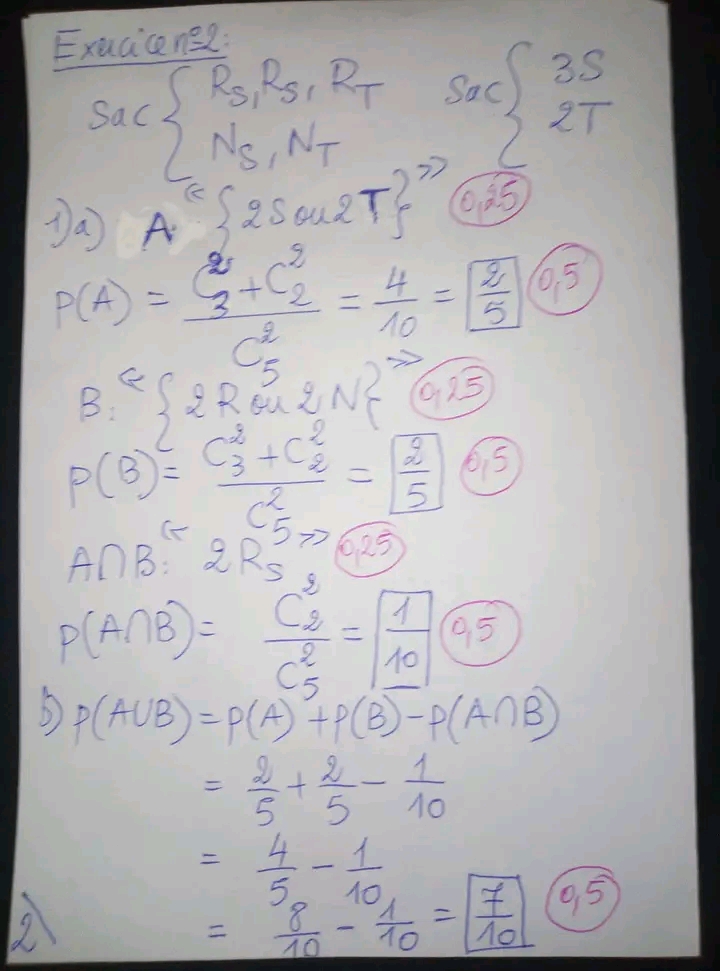 Exercice n°2:
Sac { R_S, R_S, R_T
N_S, N_T
Sac { 3S
2T
1)a) A "{2S ou 2T}" 0,25
P(A) = (C_3^2 + C_2^2)/C_5^2 = 4/10 = 2/5 0,5
B: "{2R ou 2N}" 0,25
P(B) = (C_3^2 + C_2^2)/C_5^2 = 2/5 0,5
A∩B: "2R_S" 0,25
P(A∩B) = C_2^2/C_5^2 = 1/10 0,5
b) P(A∪B) = P(A) + P(B) - P(A∩B)
= 2/5 + 2/5 - 1/10
= 4/5 - 1/10
= 8/10 - 1/10 = 7/10 0,5
2)